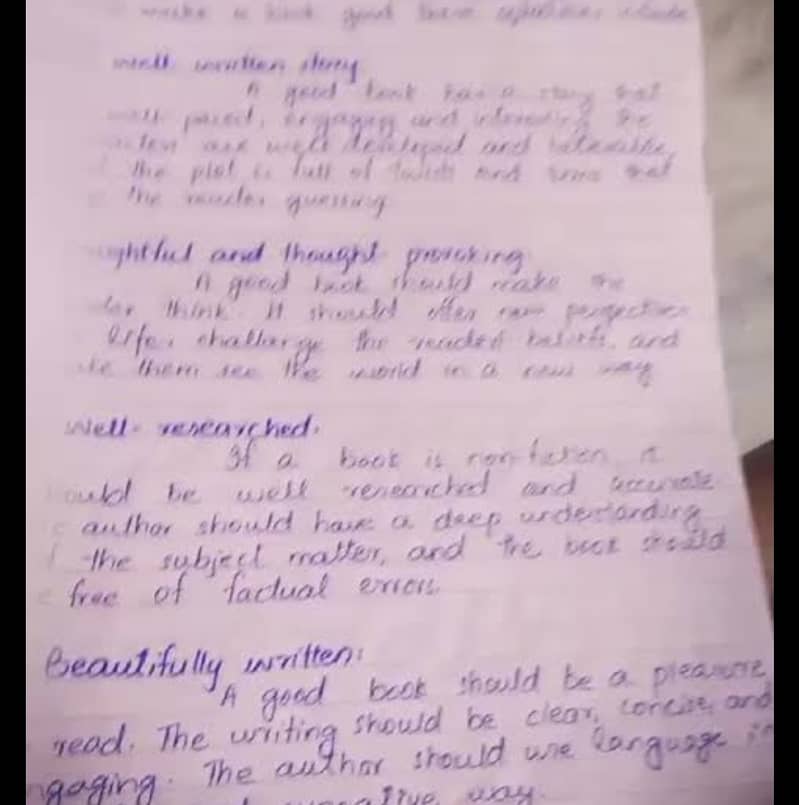 make a book good
well written story
A good book has a story that
well paced, engaging and interesting. The
are well developed and relatable,
the plot is full of twists and turns that
the reader guessing
ightful and thought provoking
A good book should make the
der think. It should offer new perspectives
life, challange the readers beliefs, and
them see the world in a new way
Well-researched.
If a book is non-fiction, it
ould be well researched and accurate
author should have a deep understanding
the subject matter, and the book should
free of factual errors
Beautifully written:
A good book should be a pleasure
read. The writing should be clear, concise, and
ngaging. The author should use language in
way.